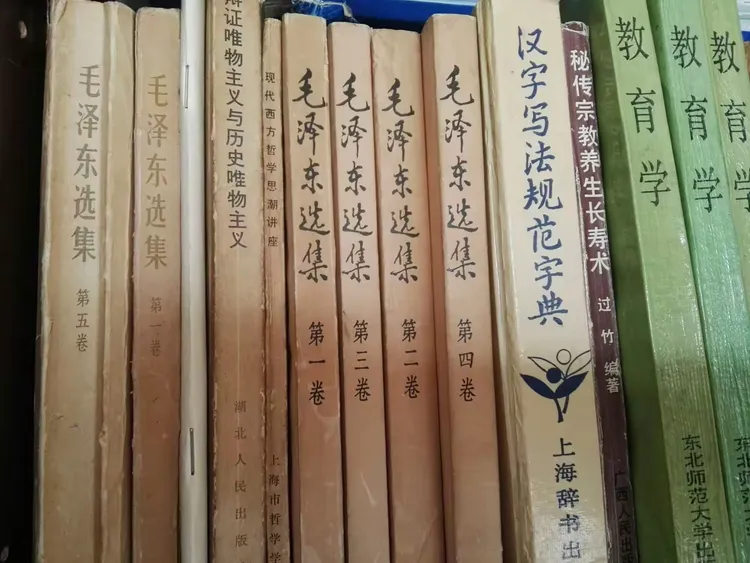 毛泽东选集
第五卷
毛泽东选集
第一卷
辩证唯物主义与历史唯物主义
湖北人民出版
现代西方哲学思潮讲座
上海市哲学学
毛泽东选集
第一卷
毛泽东选集
第三卷
毛泽东选集
第二卷
毛泽东选集
第四卷
汉字写法规范字典
上海辞书出
秘传宗教养生长寿术
过竹
编著
广西人民出版
教育学
东北师范大学出
教育学
东北师范大学
教育学